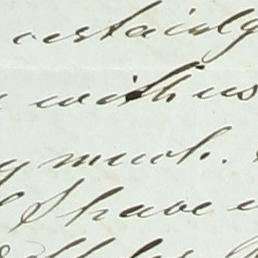 certainly
with us
much.
I have